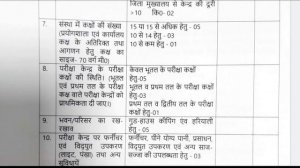 जिला मुख्यालय से केन्द्र की दूरी
>10 कि0- 02
7. संस्था में कक्षों की संख्या
(प्रयोगशाला एवं कार्यालय
कक्ष के अतिरिक्त तथा
आगणन हेतु कक्ष का
साइज- 70 वर्ग मी0)
15 या 15 से अधिक हेतु - 05
10 से 14 हेतु - 03
10 से कम हेतु - 01
8. परीक्षा केन्द्र के परीक्षा
कक्षों की स्थिति। (भूतल
एवं प्रथम तल के परीक्षा
कक्ष वाले परीक्षा केन्द्रों को
प्राथमिकता दी जाए।)
केवल भूतल के परीक्षा कक्षों
हेतु-05
भूतल व प्रथम तल के परीक्षा कक्षों
हेतु -03
प्रथम तल व द्वितीय तल के परीक्षा
कक्षों हेतु -01
9. भवन/परिसर का रख-
रखाव
गुड-हाउस कीपिंग ऐव हरियाली
हेतु- 03
10. परीक्षा केन्द्र पर फर्नीचर
एवं विद्युत उपकरण
(लाइट, पंखा) तथा अन्य
सुविधायें
फर्नीचर, पीने योग्य पानी, प्रसाधन,
विद्युत उपकरण एवं अन्य साज-
सज्जा की उपलब्धता हेतु - 03